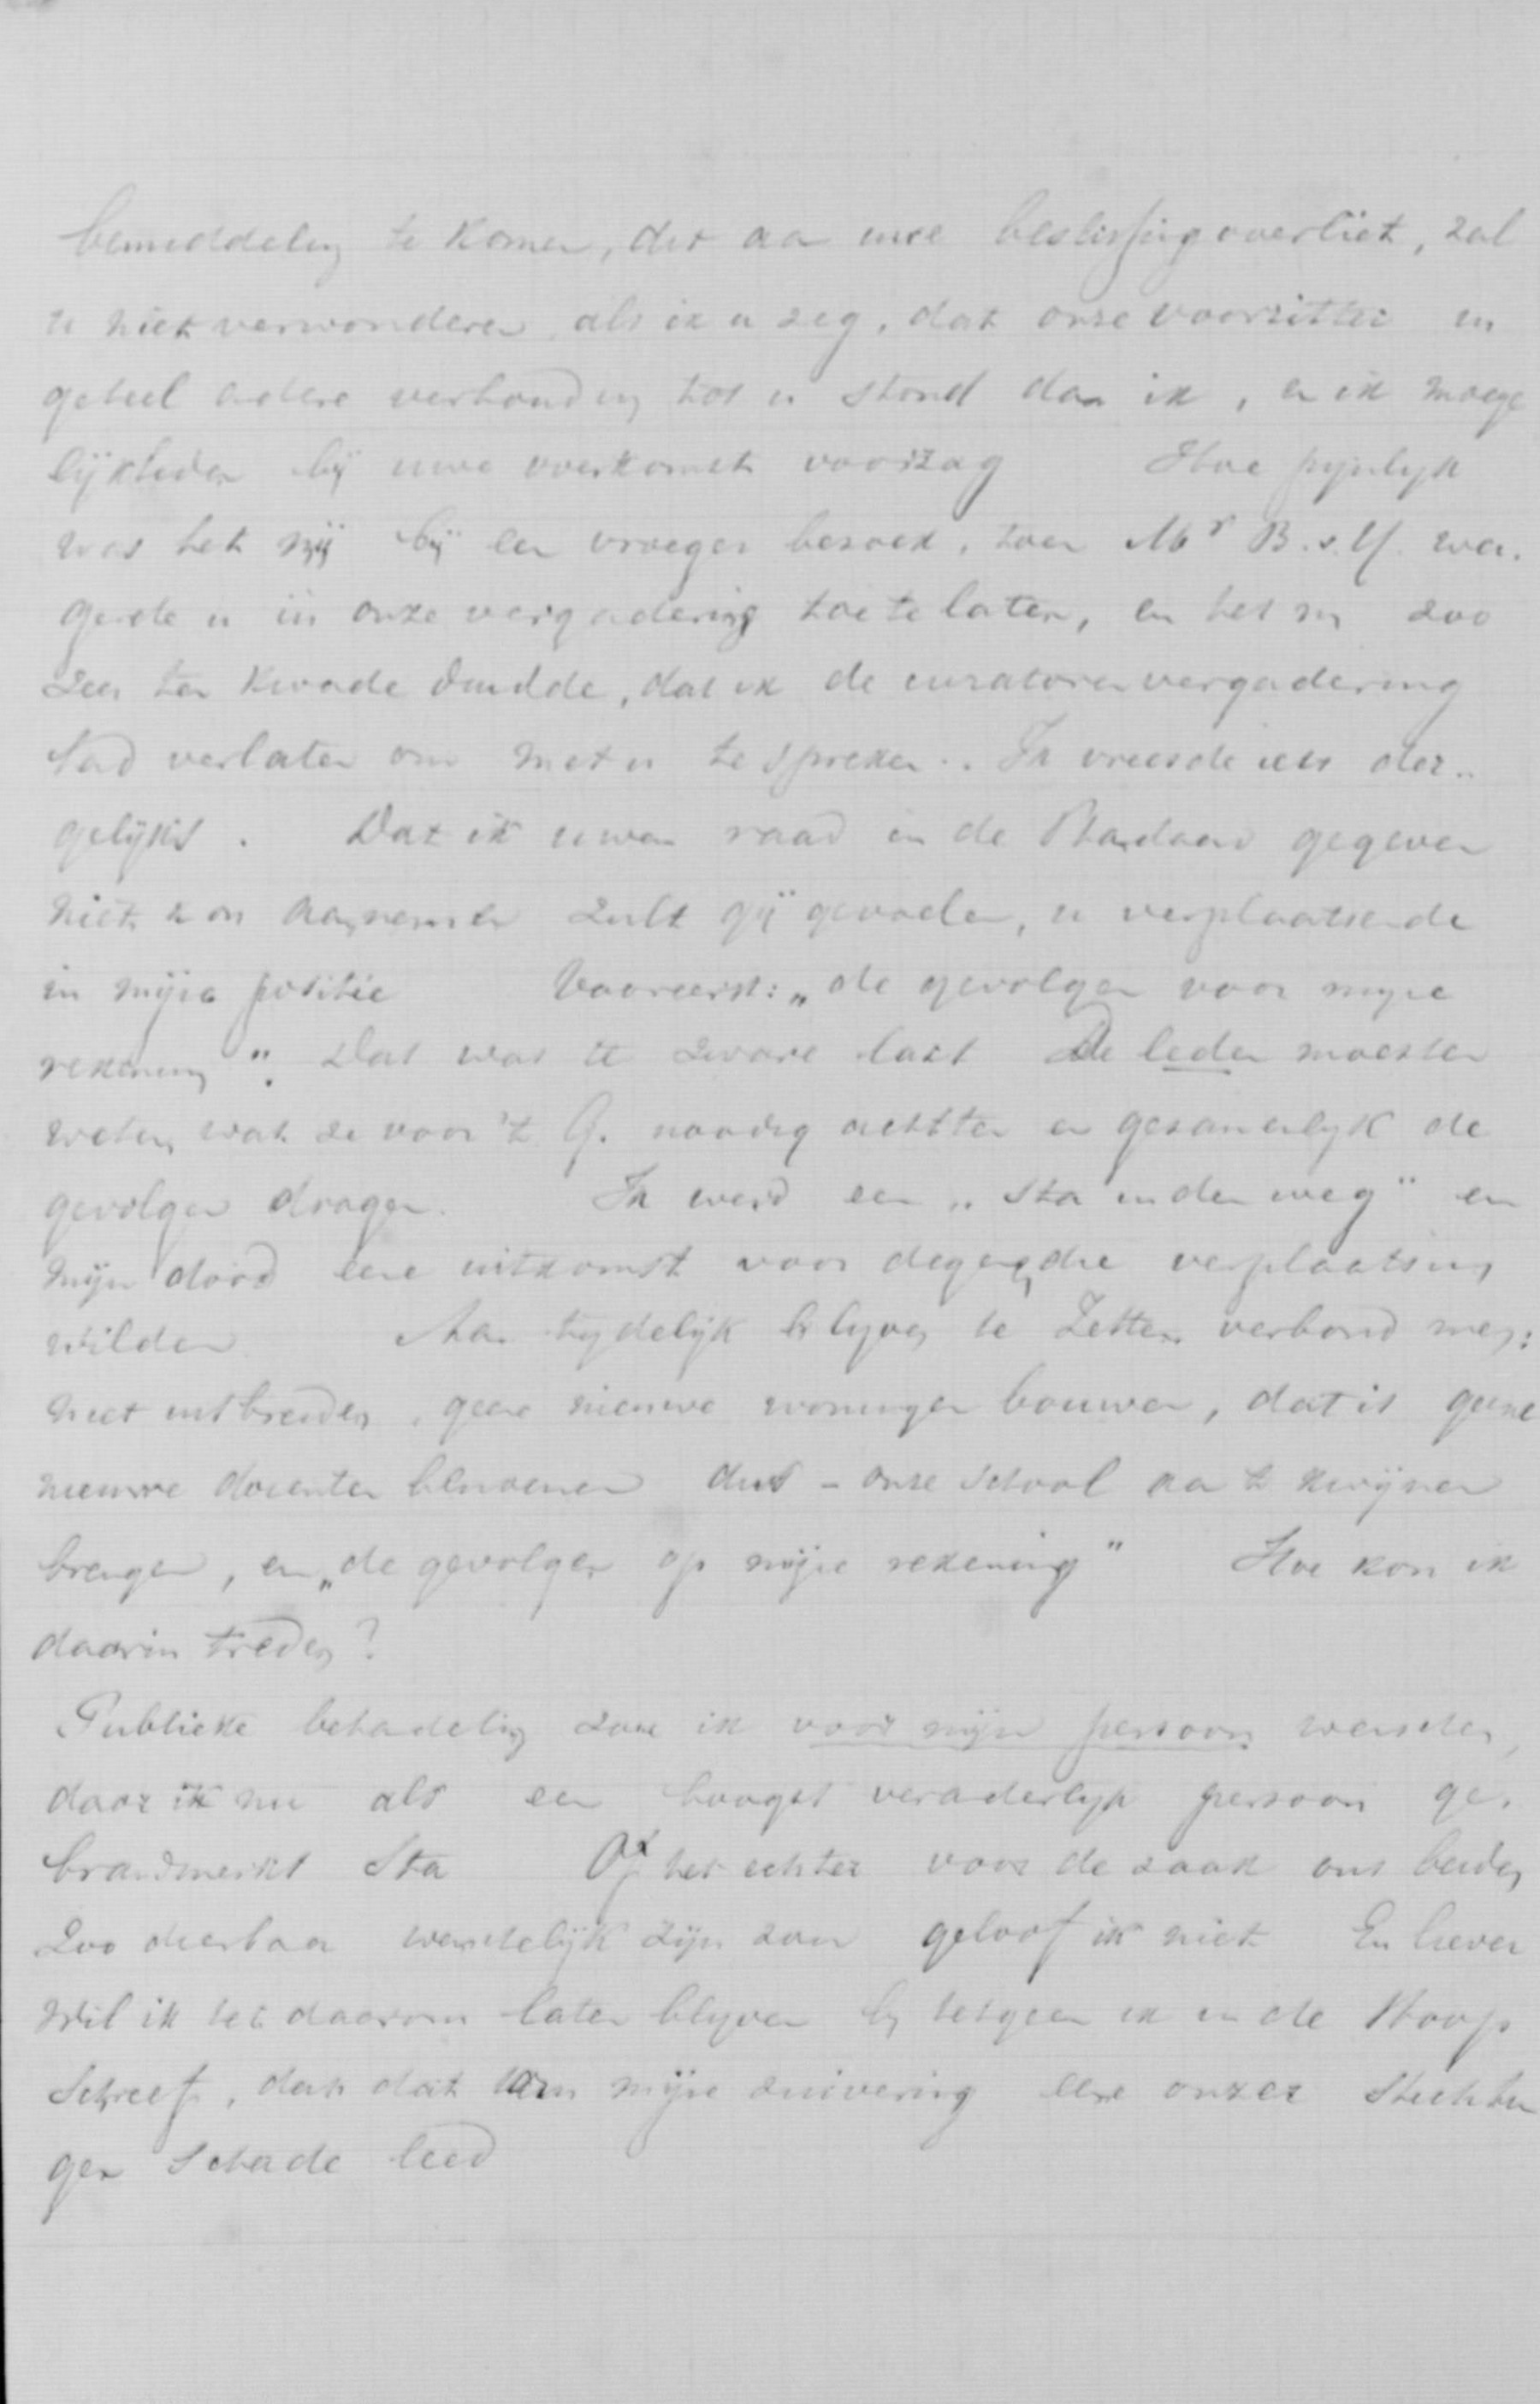 bemiddeling te komen, dit aan uwe beslissing overliet, zal
u niet verwonderen als ik u zeg, dat onze voorzitter in
geheel andere verhouding tot u stond dan ik, en ik moeye
lijkheden bij uwe overkomst voorzag Hoe pijnlyk
was het mij bij een vroeger bezoek, toen Mr B. v. Y. wei-
gerde u in onze vergadering toe te laten, en het mij zoo
zeer ten kwade duidde, dat ik de curatorenvergadering
had verlaten om met u te spreken.. Ik vreesde iets der-
gelijks. Dat ik uwen raad in de Standaard gegeven
niet kon aannemen zult gij gevoelen, u verplaatsende
in mijne positie Vooreerst: „de gevolgen voor mijne
rekening". Dat was te zware last De leden moesten
weten, wat ze voor 't G. noodig achtten en gezamenlyk de
gevolgen dragen. Ik werd een „sta in den weg" en
mijn dood eene uitkomst voor degenen die verplaatsing
wilden Aan tydelijk blyven te Zetten verbond men:
niet uitbreiden, geene nieuwe woningen bouwen, dat is geene
nieuwe docenten benoemen dus - onze school aan 't kwijnen
brengen, en „de gevolgen op mijne rekening" Hoe kon ik
daarin treden?
Publieke behandeling zou ik voor mijn persoon wenschen,
daar ik nu als een hoogst veranderlyk persoon ge-
brandmerkt sta Of het echter voor de zaak ons beiden
zoo dierbaar wenschelijk zijn zou geloof ik niet En liever
wil ik het daarom laten blyven bij hetgeen ik in de Hoop
schreef, dan dat om mijne zuivering eene onzer Stichtin
gen schade leed